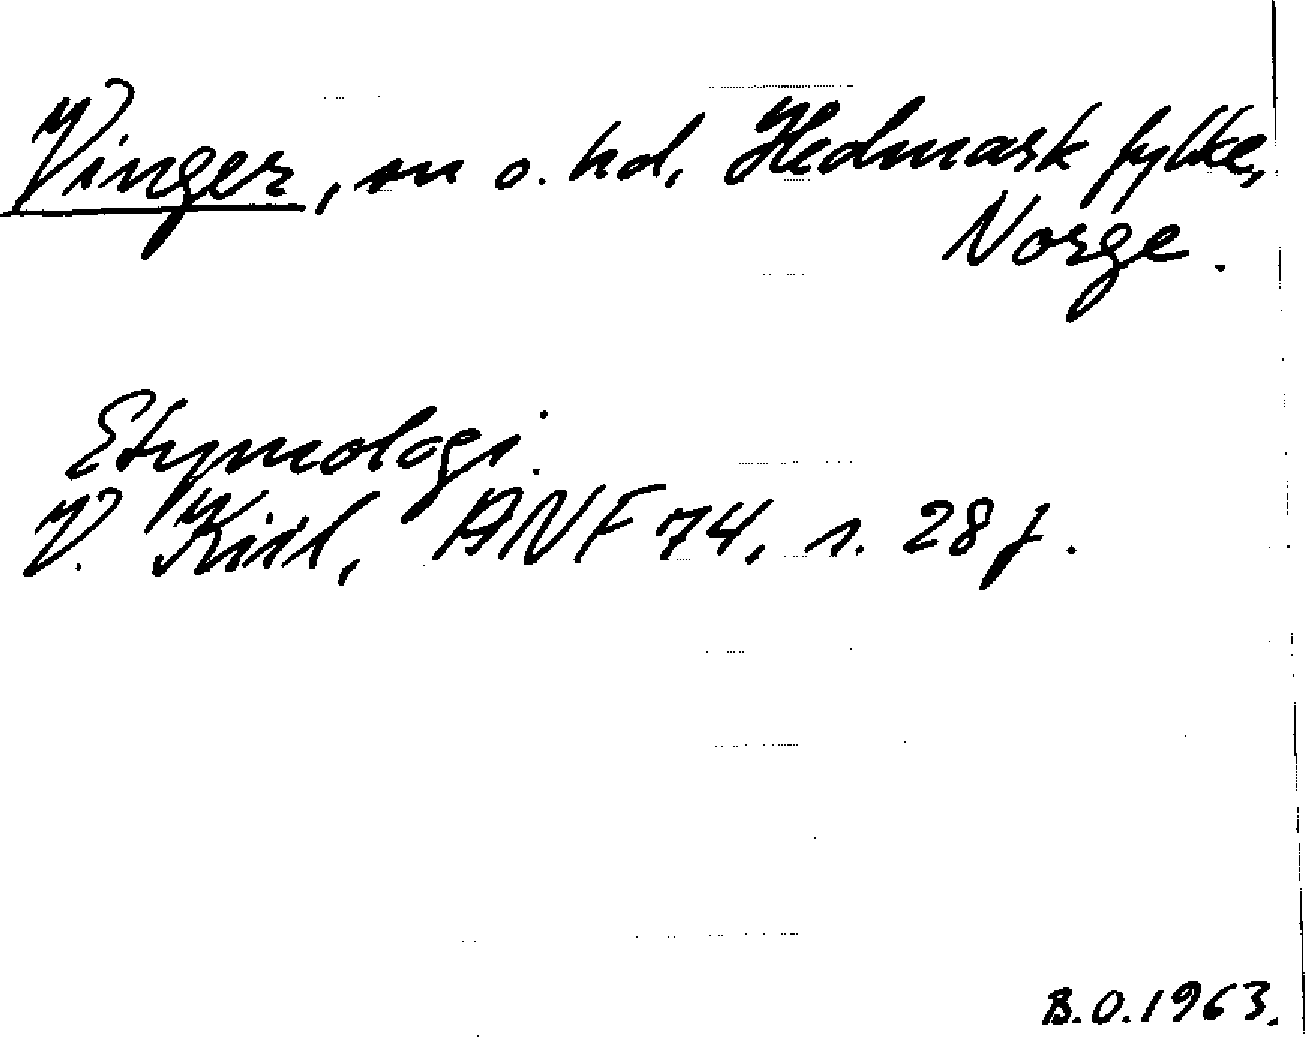 Vinger, sn o. hd, Hedmark fylke,
Norge.
Etymologi.
V. Kiil, ANF 74, s. 28 f.
B.O. 1963.